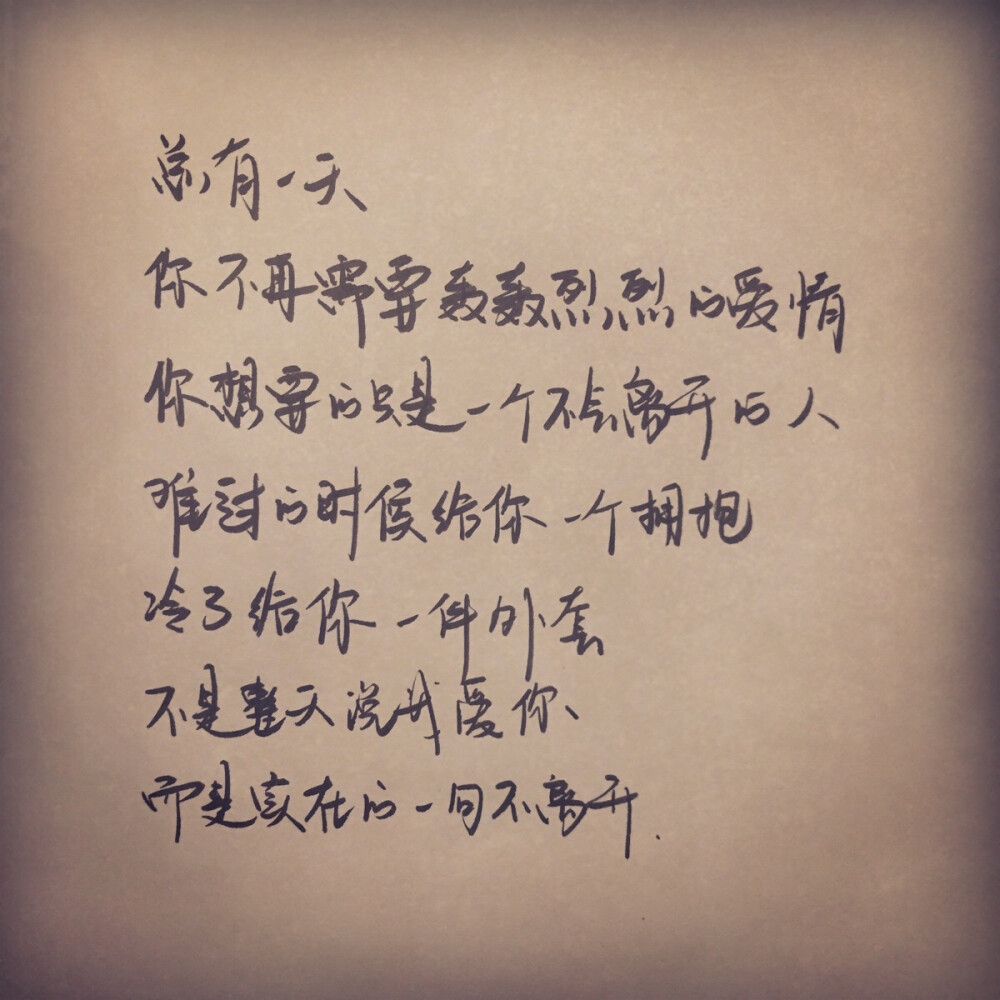 总有一天
你不再需要轰轰烈烈的爱情
你想要的只是一个不会离开的人
难过的时候给你一个拥抱
冷了给你一件外套
不是整天说我爱你、
而是实在的一句不离开.